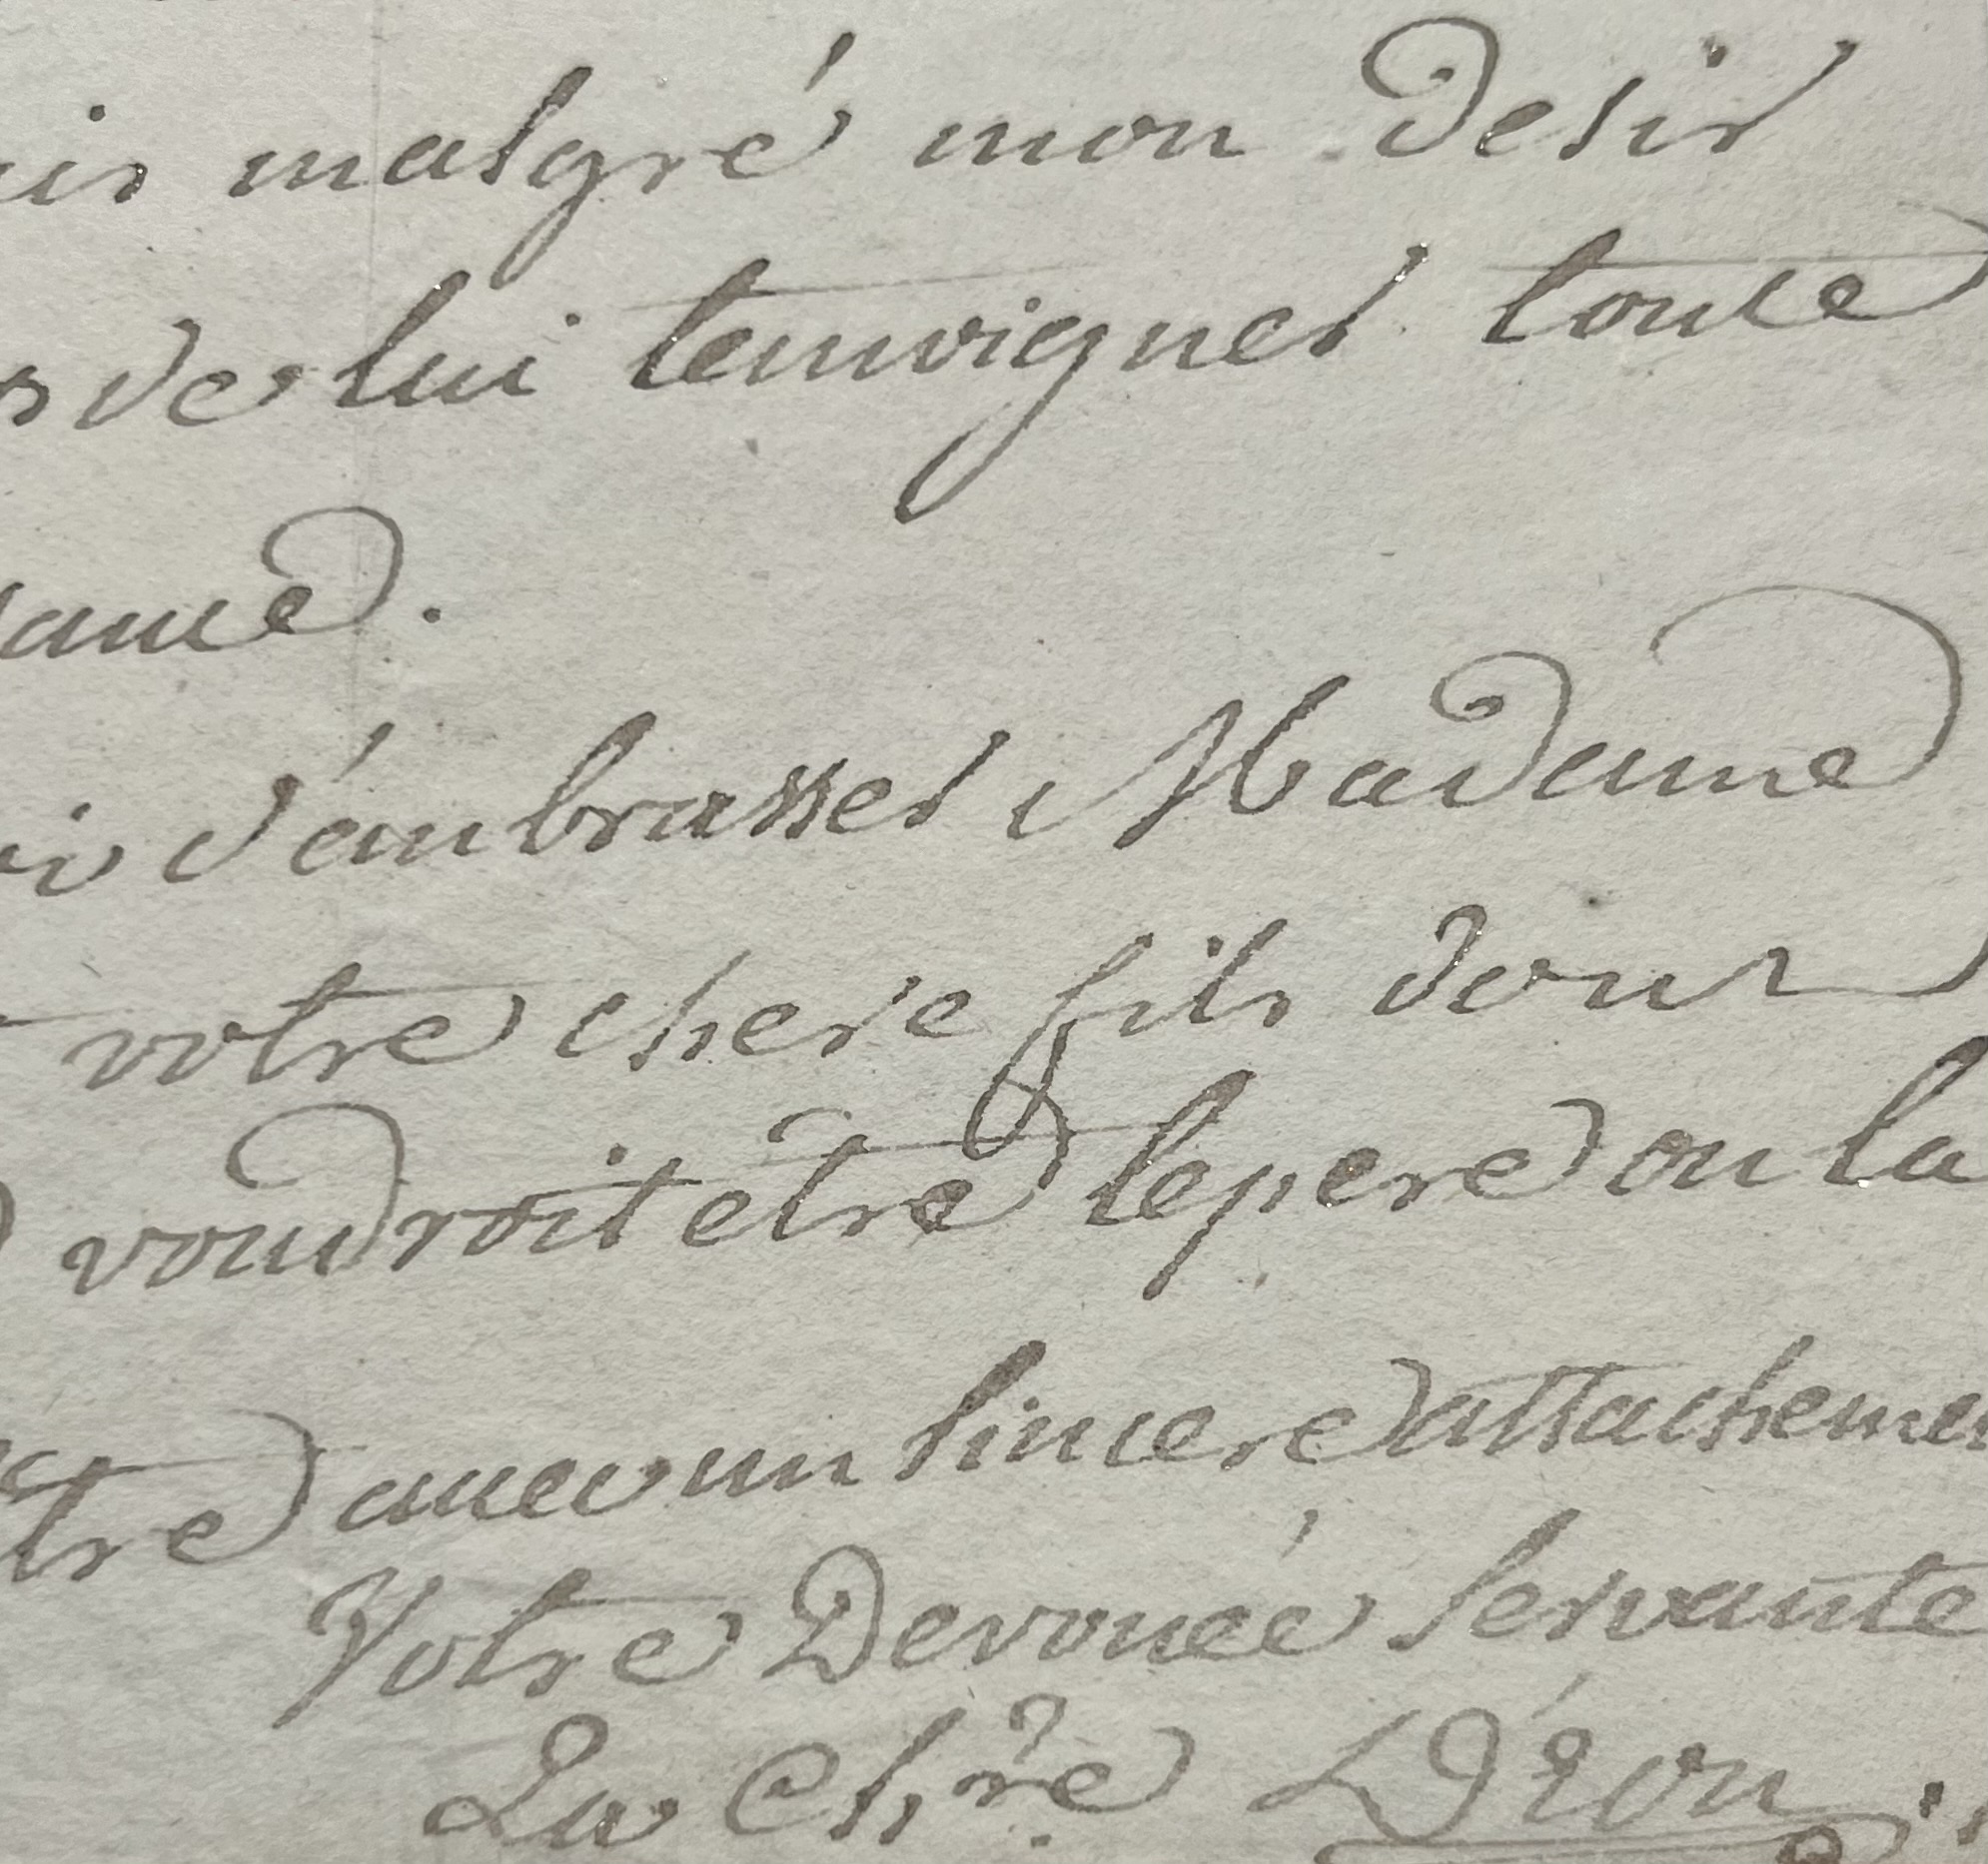 malgré mon desir
de lui temoigner toute
d'embrasser Madame
votre chere fils dont
voudroit être le pere ou la
tre avec un sincere attacheme
Votre Devouée servante
La Ch.re D'éon